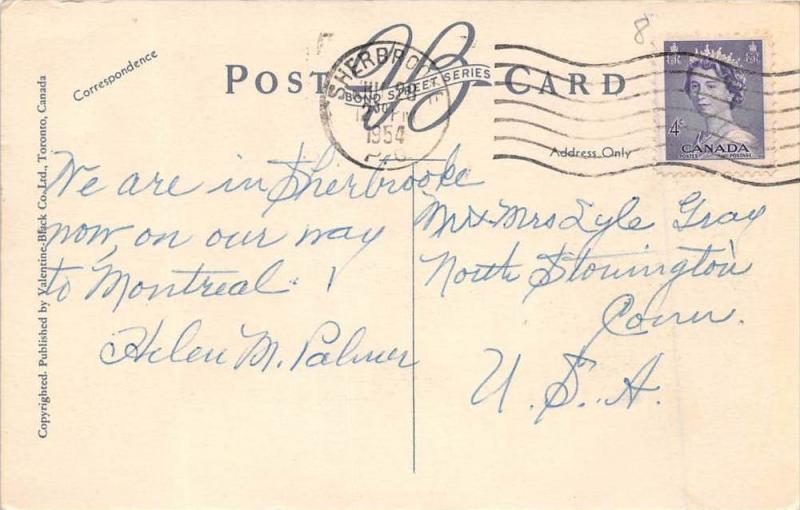 8
Correspondence
POST CARD
VB
BOND STREET SERIES
SHERBROOKE
1954
P.Q.
Address Only
4¢
CANADA
POSTES POSTAGE
Copyrighted. Published by Valentine-Black Co., Ltd., Toronto, Canada
We are in Sherbrooke
now, on our way
to Montreal.
Helen M. Palmer
Mr & Mrs Lyle Gray
North Stonington
Conn.
U.S.A.